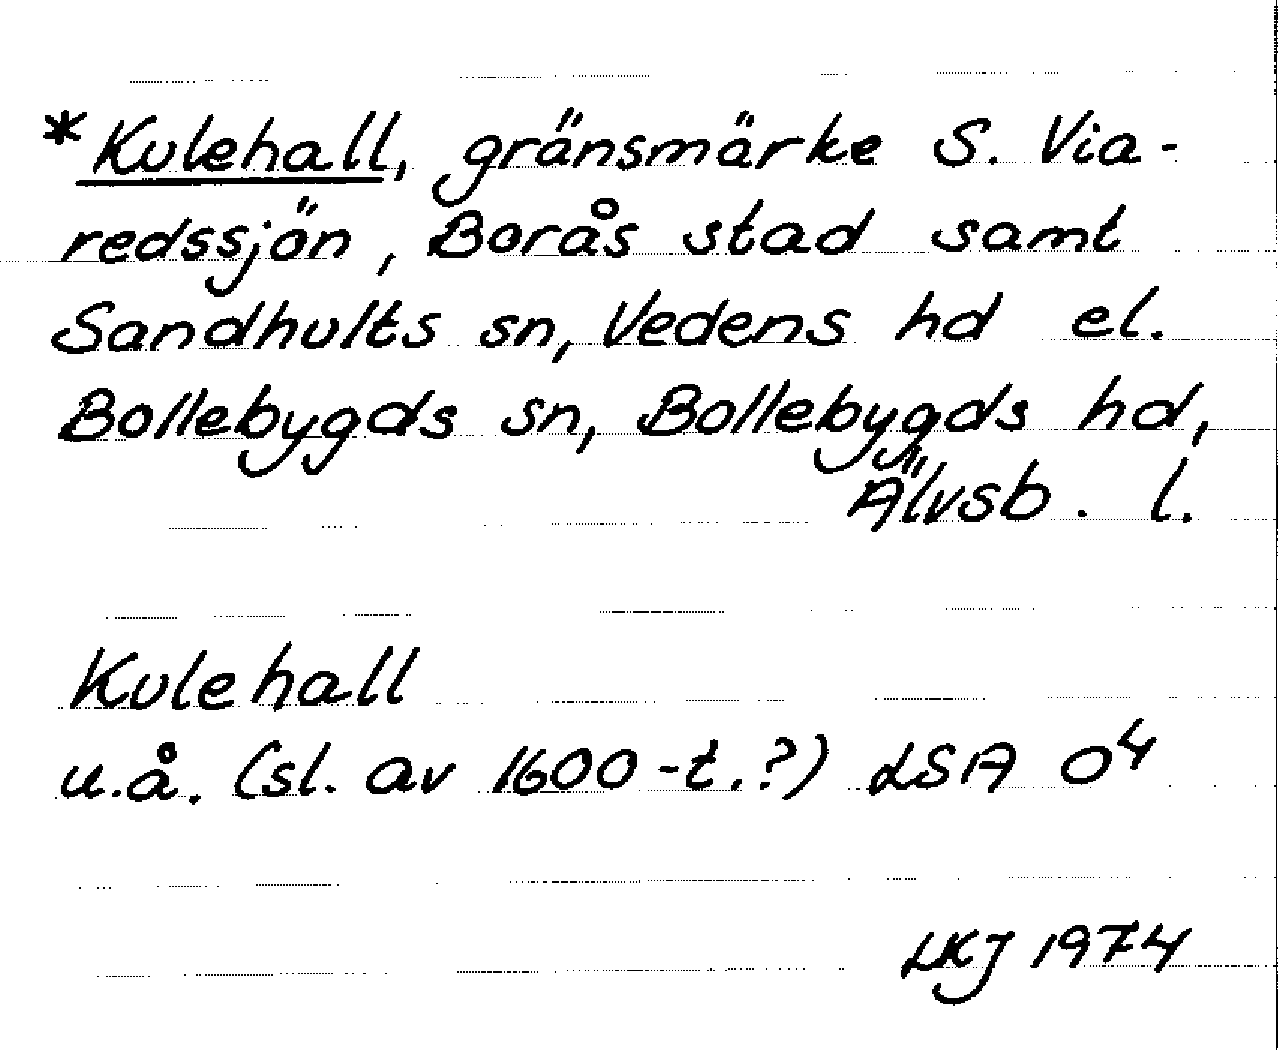 *Kulehall, gränsmärke S. Via-
redssjön, Borås stad samt
Sandhults sn, Vedens hd el.
Bollebygds sn, Bollebygds hd,
Älvsb. l.
Kulehall
u.å. (sl. av 1600-t.?) LSA O⁴
LKJ 1974